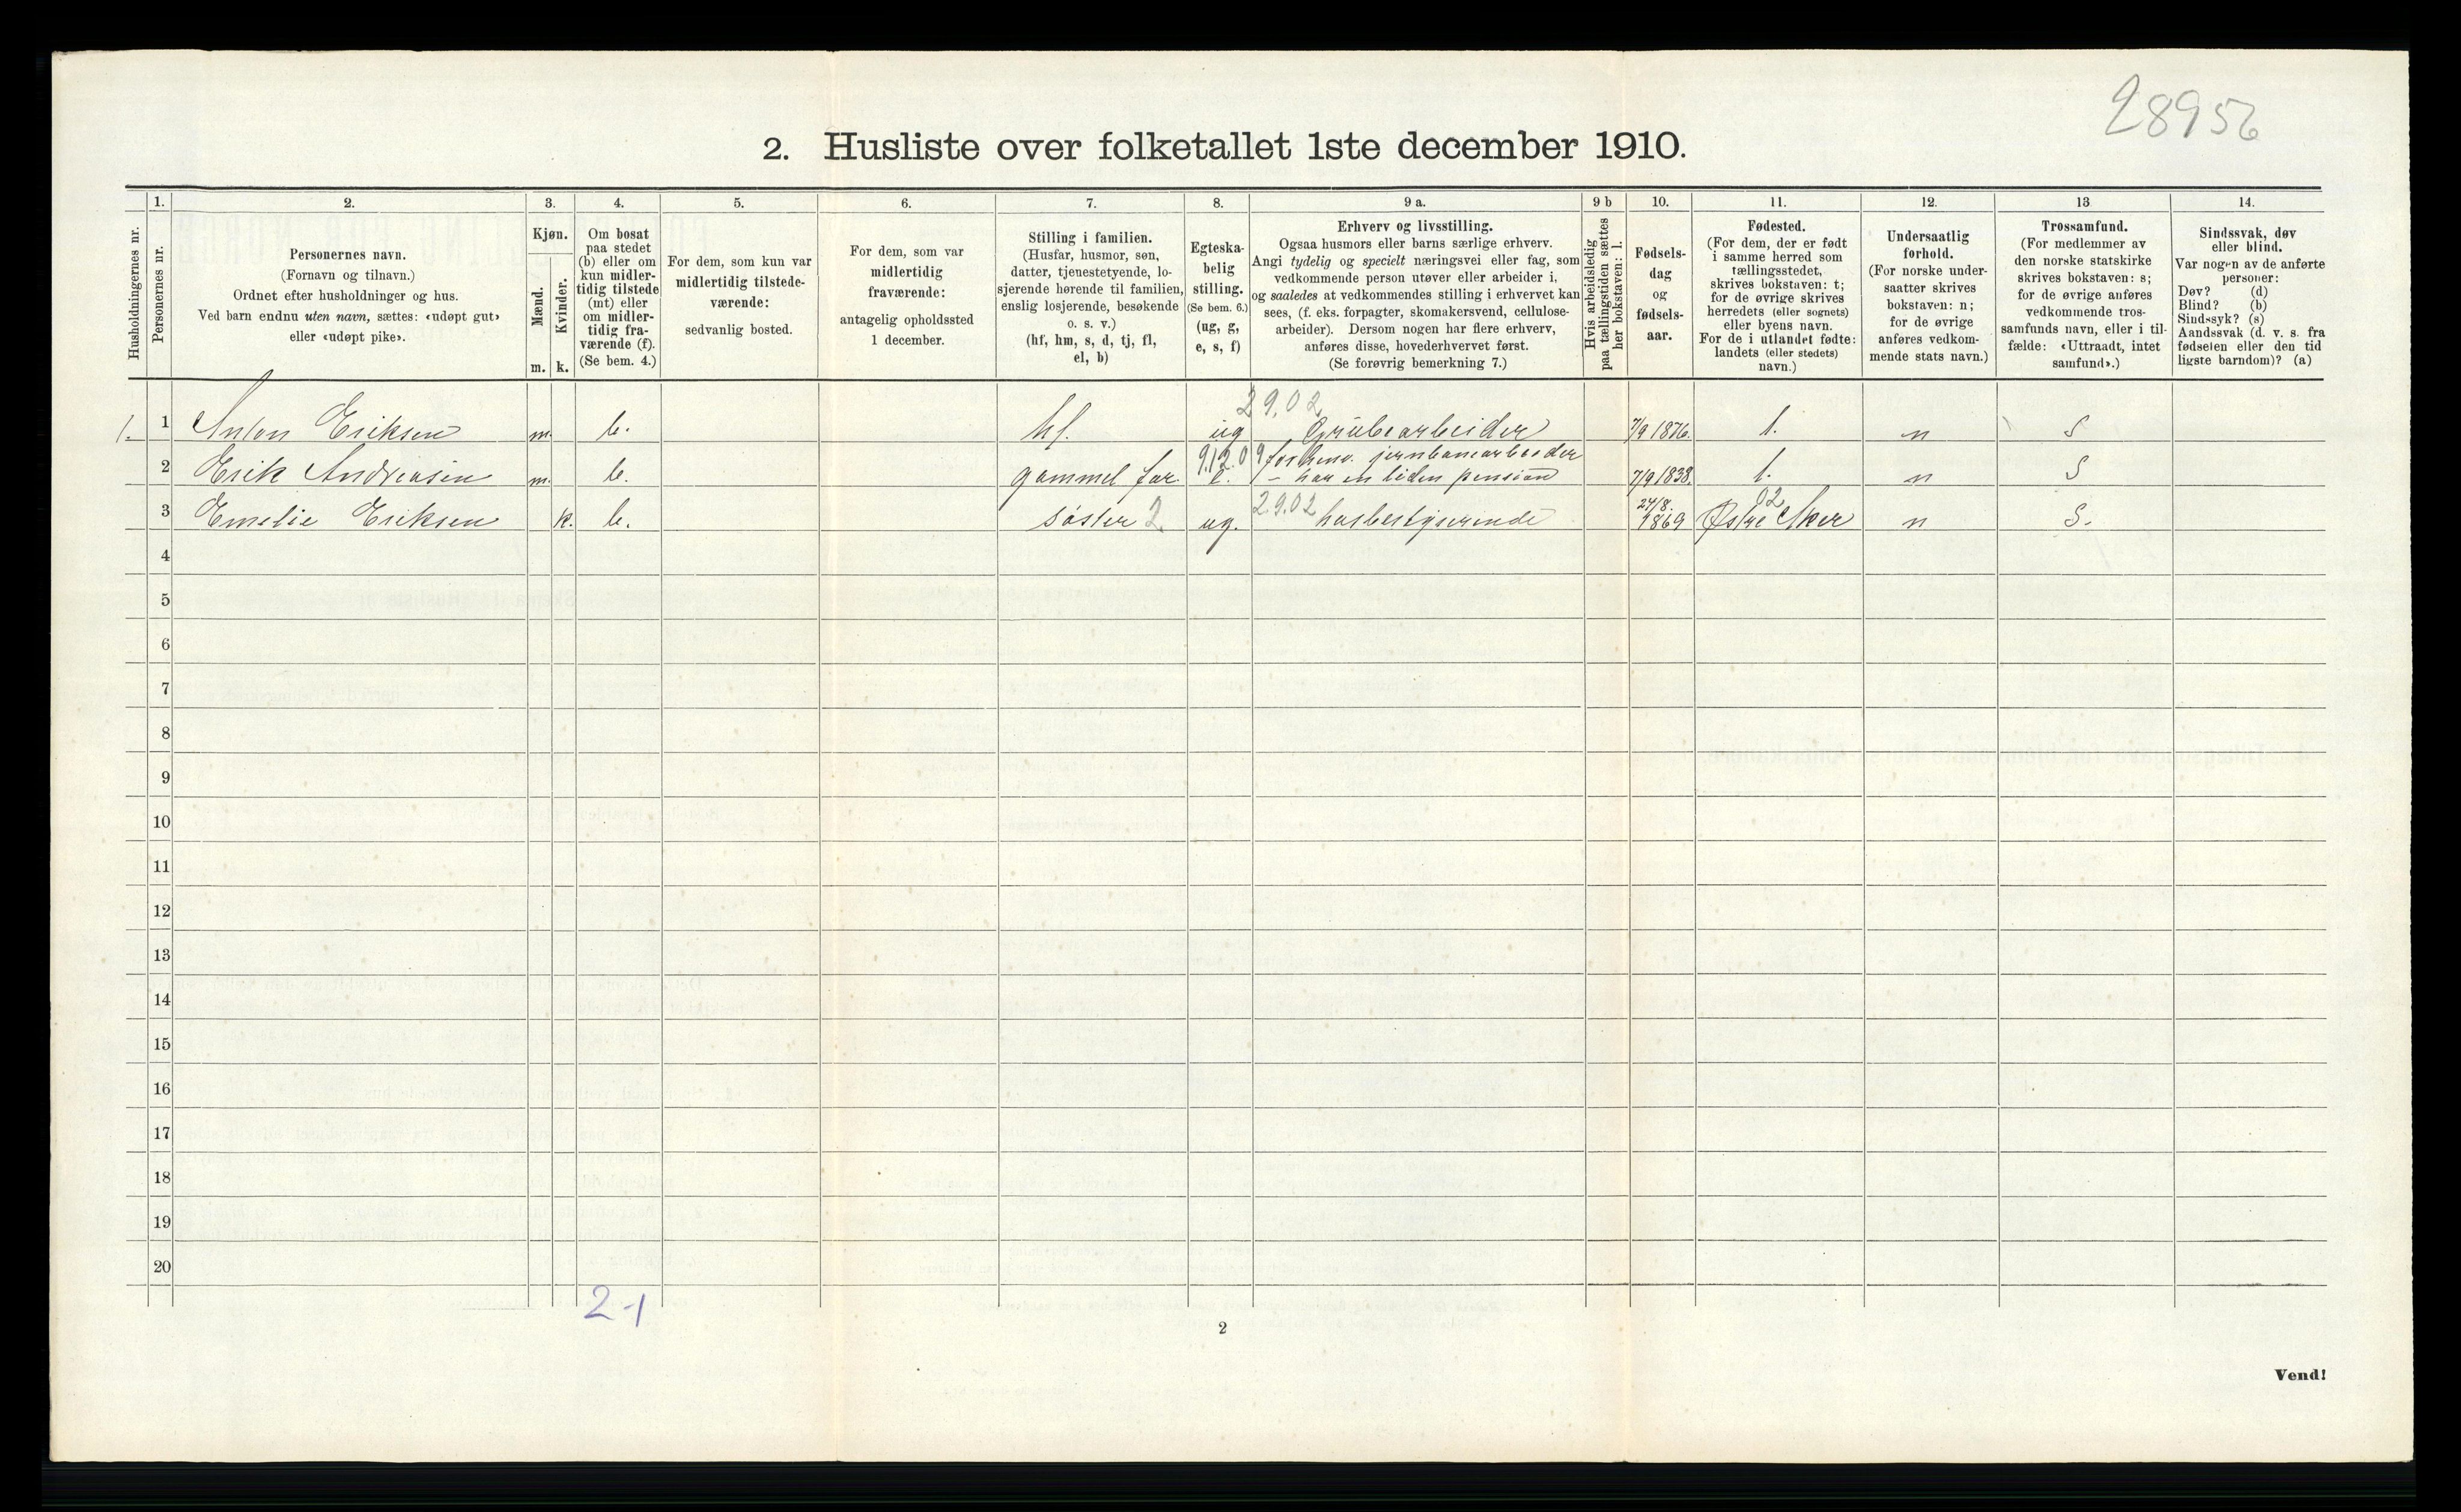 28956
2. Husliste over folketallet 1ste december 1910.
Husholdningernes nr.
1.
Personernes nr.
2.
Personernes navn.
(Fornavn og tilnavn.)
Ordnet efter husholdninger og hus.
Ved barn endnu uten navn, sættes: «udøpt gut»
eller «udøpt pike».
3.
Kjøn.
Mænd.
Kvinder.
m. k.
4.
Om bosat
paa stedet
(b) eller om
kun midler-
tidig tilstede
(mt) eller
om midler-
tidig fra-
værende (f).
(Se bem. 4.)
5.
For dem, som kun var
midlertidig tilstede-
værende:
sedvanlig bosted.
6.
For dem, som var
midlertidig
fraværende:
antagelig opholdssted
1 december.
7.
Stilling i familien.
(Husfar, husmor, søn,
datter, tjenestetyende, lo-
sjerende hørende til familien,
enslig losjerende, besøkende
o. s. v.)
(hf, hm, s, d, tj, fl,
el, b)
8.
Egteska-
belig
stilling.
(Se bem. 6.)
(ug, g,
e, s, f)
9 a.
Erhverv og livsstilling.
Ogsaa husmors eller barns særlige erhverv.
Angi tydelig og specielt næringsvei eller fag, som
vedkommende person utøver eller arbeider i,
og saaledes at vedkommendes stilling i erhvervet kan
sees, (f. eks. forpagter, skomakersvend, cellulose-
arbeider). Dersom nogen har flere erhverv,
anføres disse, hovederhvervet først.
(Se forøvrig bemerkning 7.)
9 b
Hvis arbeidsledig
paa tællingstiden sættes
her bokstaven: l.
10.
Fødsels-
dag
og
fødsels-
aar.
11.
Fødested.
(For dem, der er født
i samme herred som
tællingsstedet,
skrives bokstaven: t;
for de øvrige skrives
herredets (eller sognets)
eller byens navn.
For de i utlandet fødte:
landets (eller stedets)
navn.)
12.
Undersaatlig
forhold.
(For norske under-
saatter skrives
bokstaven: n;
for de øvrige
anføres vedkom-
mende stats navn.)
13
Trossamfund.
(For medlemmer av
den norske statskirke
skrives bokstaven: s;
for de øvrige anføres
vedkommende tros-
samfunds navn, eller i til-
fælde: «Uttraadt, intet
samfund».)
14.
Sindssvak, døv
eller blind.
Var nogen av de anførte
personer:
Døv? (d)
Blind? (b)
Sindssyk? (s)
Aandssvak (d. v. s. fra
fødselen eller den tid
ligste barndom)? (a)
29.02
1. 1 Anton Eriksen m. b. hf. ug Grubearbeider 7/9 1876. t. n S
9.12.09 forhenv. jernbanearbeider
2 Erik Andreasen m. b. gammel far e. - har en liden pension 7/9 1838. t. n S
3 Emelie Eriksen k. b. søster 2 ug. 29.02 husbestyrerinde 24/8 1869 Østre Aker 02 n S.
4
5
6
7
8
9
10
11
12
13
14
15
16
17
18
19
20
2-1
2
Vend!